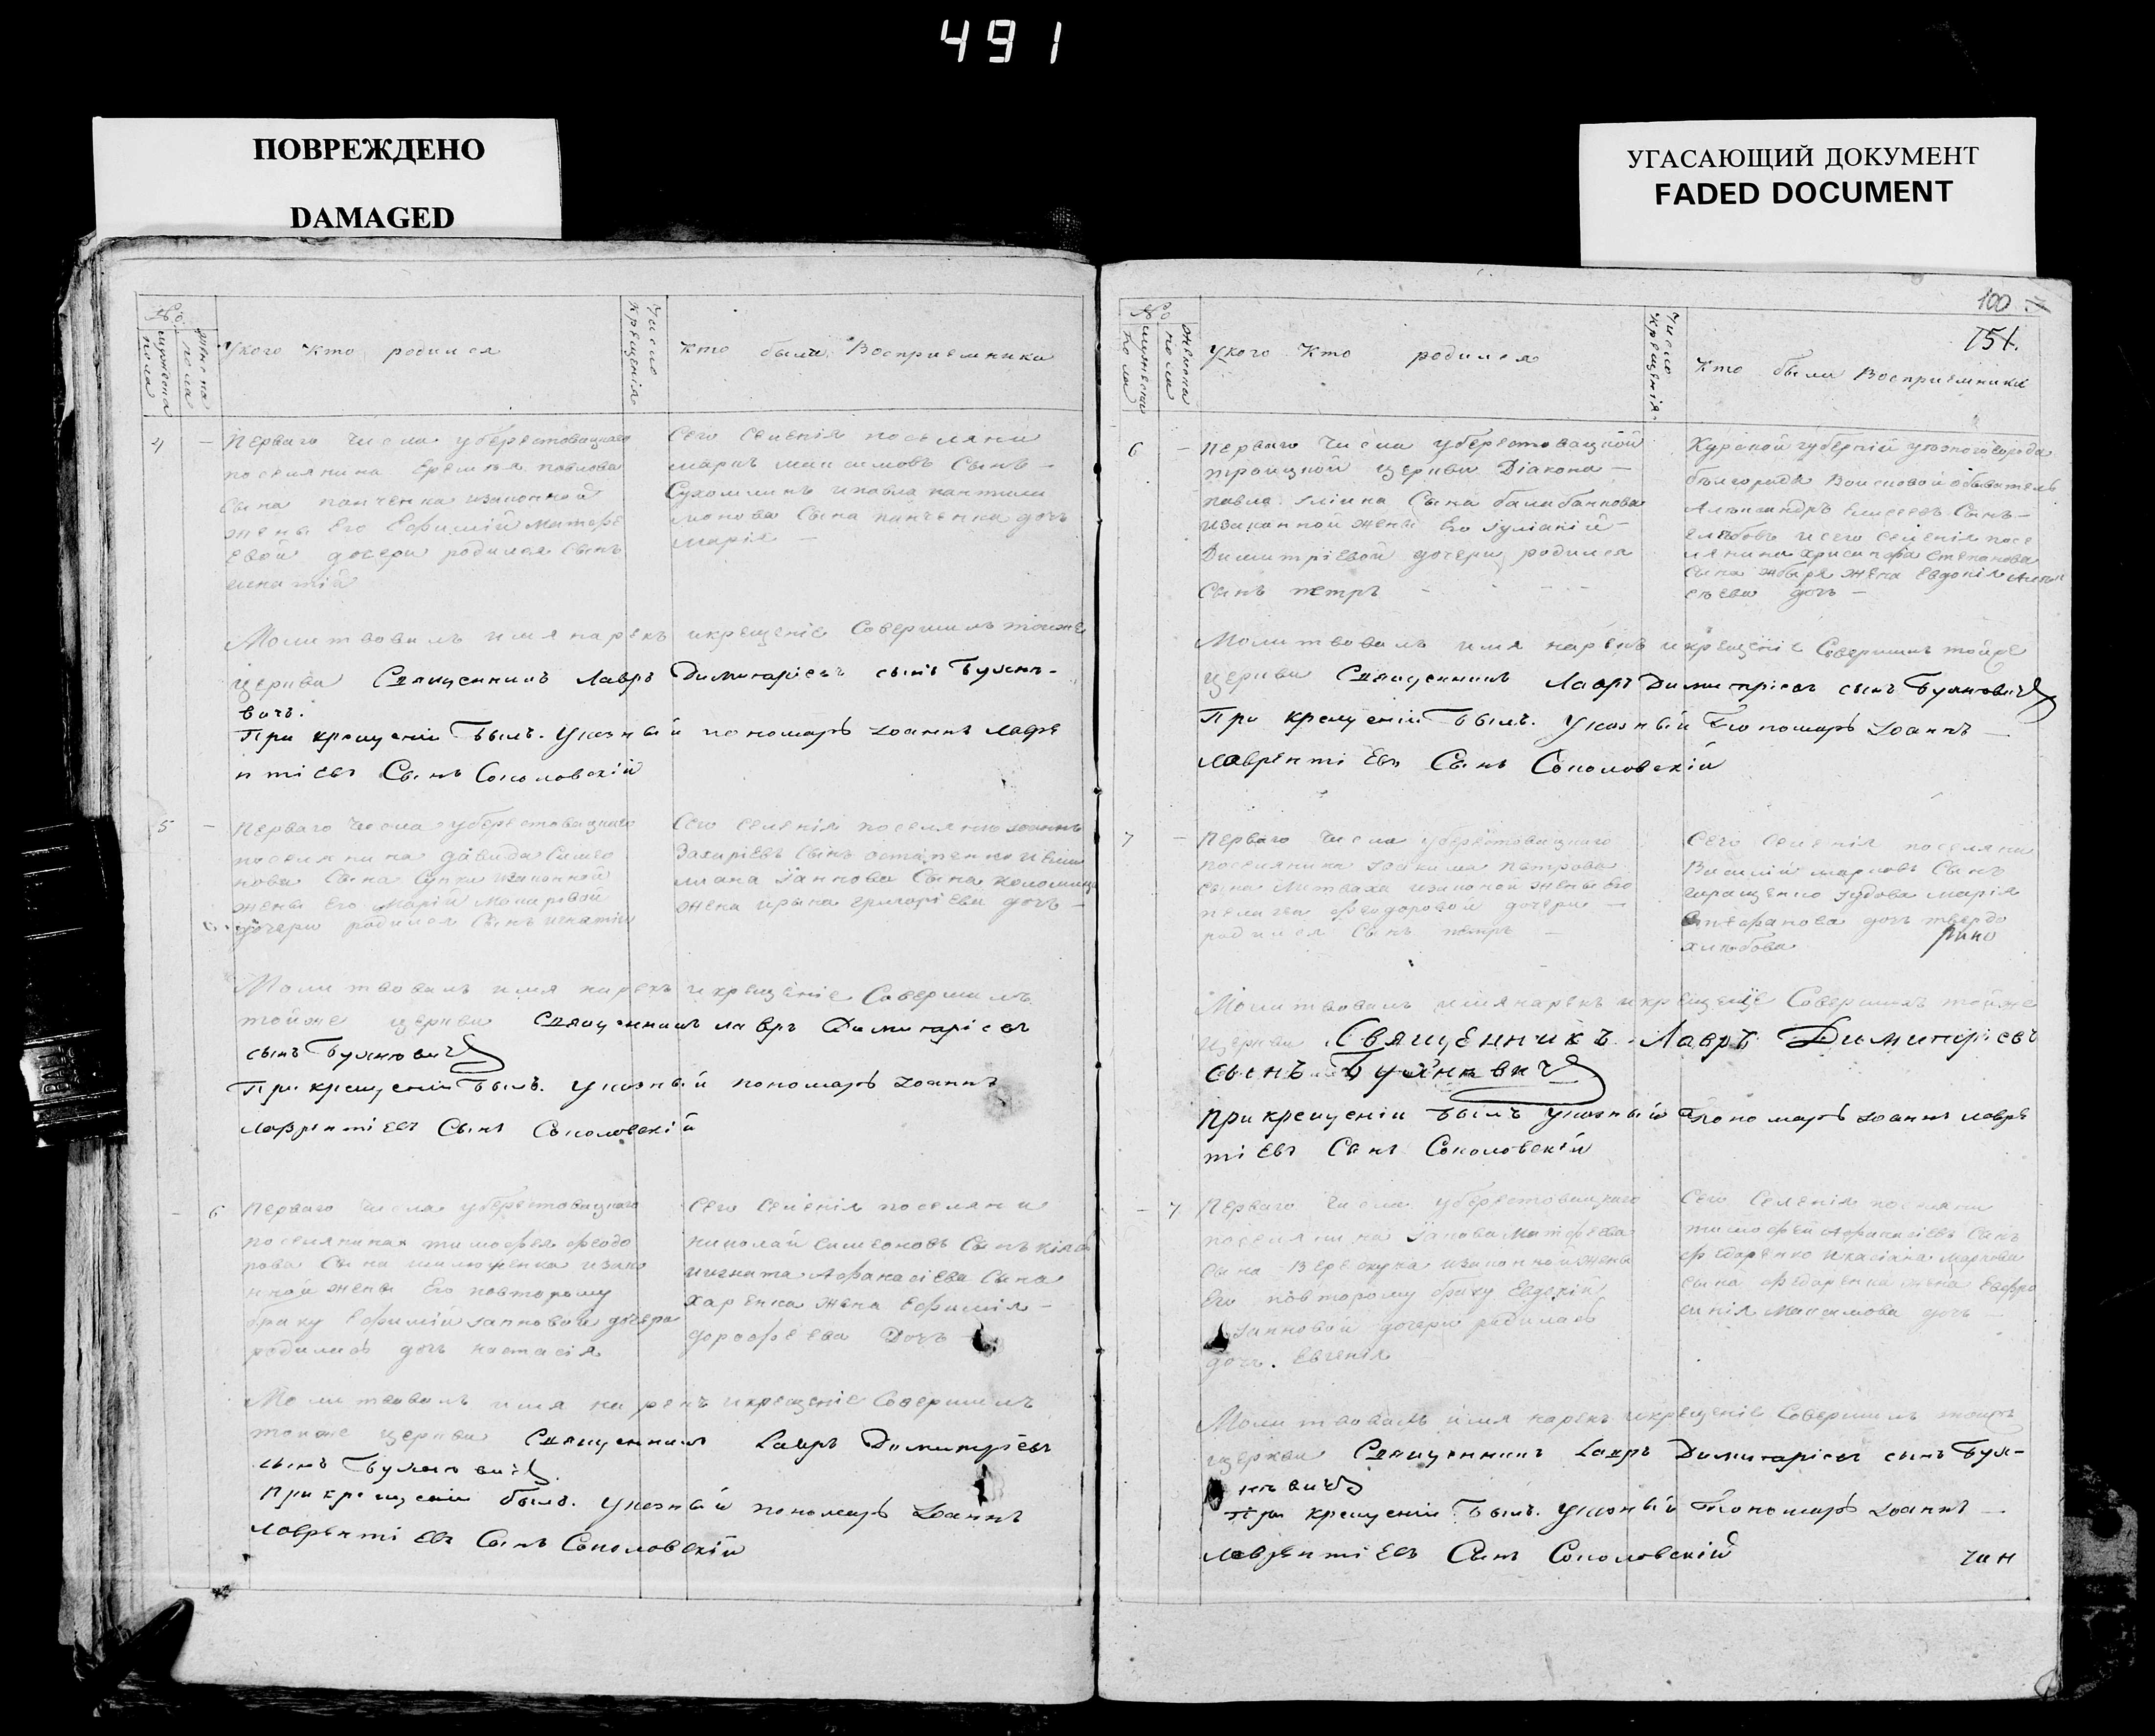 491
ПОВРЕЖДЕНО
DAMAGED
УГАСАЮЩИЙ ДОКУМЕНТ
FADED DOCUMENT
№
мужеска пола
женска пола
У кого кто родился
Число крещенія
Кто были Восприемники
4
Перваго числа уберестовацкаго
поселянина Еремея павлова
сына панченка изаконной
жены Его Ефимій матфе
евой дочери родился сынъ
игнатій
Сего селенія поселяни
маркъ максимовъ Сынъ
Сухомлинъ ипавла пантили
монова Сына панченка дочь
марія
Молитвовалъ имя нарекъ икрещеніе Совершилъ тойже
церкви Священникъ Лавръ Димитріевъ сынъ Буянъ-
вичъ.
При крещеніи Былъ. Указный пономарь Іоаннъ лавре
нтіевъ Сынъ Соколовскій
5
Перваго числа уберестовацкаго
поселянина давида Симео
нова Сына изаконной
жены Его марій макаровой
дочери родился Сынъ игнатій
Сего селенія поселяни іоаннъ
Захаріевъ Сынъ остапенко
Іаннова Сына коломийца
жена ирына григоріева дочь
Молитвовалъ имя нарекъ икрещеніе Совершилъ
тойже церкви Священникъ лавръ Димитріевъ
сынъ Буяновичъ
При крещеніи Былъ. Указный пономарь Іоаннъ
лаврентіевъ Сынъ Соколовскій
6
Перваго числа уберестовацкаго
поселянина тимофея феодо
рова Сына изако
нной жены Его повторому
браку Ефимій іанновой дочери
родилась дочь настасія
Сего селенія поселяни
николай симеоновъ Сынъ
иигната Афанасіева Сына
харенка жена Ефимія
дорофеева Дочь
Молитвовалъ имя нарекъ икрещеніе Совершилъ
тойже церкви Священникъ Лавръ Димитріевъ
сынъ Буяновичъ.
При крещеніи былъ. Указный пономарь Іоаннъ
лаврентіевъ Сынъ Соколовскій
100
751.
№
мужеска пола
женска пола
У кого Кто родился
Число крещенія.
Кто были Восприемники
6
Перваго числа уберестовацкой
троицкой церкви Діакона
павла іліина Сына балабанова
изаконной жены Его іуліаній
Димитріевой дочери родился
Сынъ петръ
Курской губерній уезного города
белгорода Воисковой обыватель
Александръ Елисеевъ Сынъ
исего селенія посе
лянина хрисанфа степанова
сына жена Евдокія Алек
сеева дочь
Молитвовалъ имя нарекъ икрещеніе Совершилъ тойже
церкви Священникъ Лавръ Димитріевъ сынъ Буяновичъ
При крещеніи Былъ. Указный Пономарь Іоаннъ
лаврентіевъ Сынъ Соколовскій
7
Перваго числа уберестовацкаго
поселянина іоакима петрова
сына изаконой жены Его
пелагеи феодоровой дочери
родился Сынъ петръ
Сего селенія поселяни
Василій марковъ Сынъ
геращенко вдова марія
стефанова дочь твердо
хлебова
Молитвовалъ имянарекъ икрещеніе Совершилъ тойже
церкви Священникъ Лавръ Димитріевъ
сынъ Буяновичъ
При крещеніи Былъ Указный Пономарь Іоаннъ лавре
тіевъ Сынъ Соколовскій
7
Перваго числа уберестовацкаго
поселянина Іакова Матфеева
Сына изаконной жены
Его повторому браку Евдокій
Іанновой дочери родилась
дочь. Евгенія
Сего Селенія поселяни
тимофей Афанасіевъ Сынъ
федоренко икасіана маркова
сына федоренка жена Евфро
синія Максимова дочь
Молитвовалъ имя нарекъ икрещеніе Совершилъ тойже
церкви Священникъ Лавръ Димитріевъ сынъ Буя-
новичъ
При крещеніи Былъ. Указный Пономарь Іоаннъ
лаврентіевъ Сынъ Соколовскій